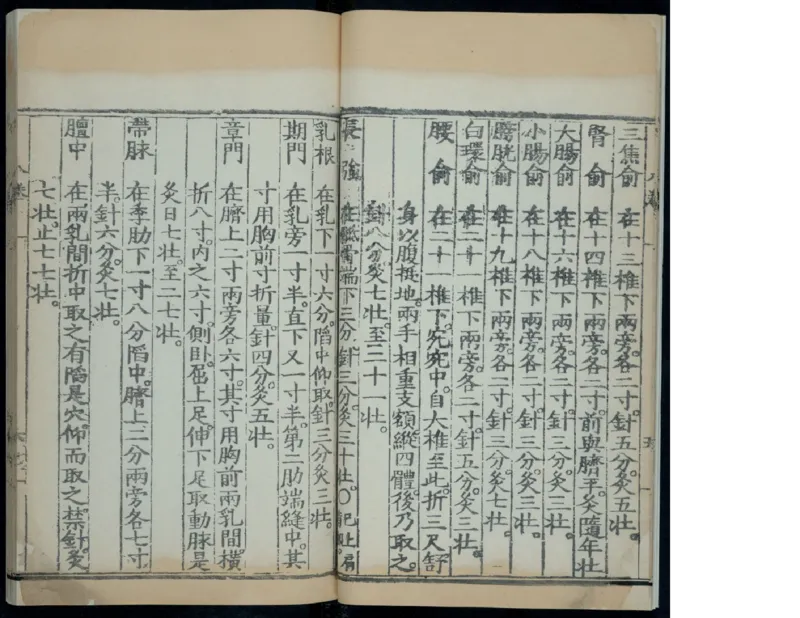 三焦俞 在十三椎下兩旁。各二寸。針五分。灸五壯。
腎俞 在十四椎下兩旁。各二寸。前與臍平。灸隨年壯
大腸俞 在十六椎下兩旁。各二寸。針三分。灸三壯。
小腸俞 在十八椎下兩旁。各二寸。針三分。灸三壯。
膀胱俞 在十九椎下兩旁。各二寸。針三分。灸七壯。
白環俞 在二十一椎下兩旁。各二寸。針五分。灸三壯。
腰俞 在二十一椎下。宛宛中。自大椎至此。折三尺舒
身以腹挺地。兩手相重支額。縱四體。後乃取之。
針八分。灸七壯。至二十一壯。
長強 在骶骨端下三分。針三分。灸三十壯。〇
乳根 在乳下一寸六分。陷中。仰取。針三分。灸三壯。
期門 在乳旁一寸半。直下又一寸半。第二肋端縫中。其
寸用胸前寸折量。針四分。灸五壯。
章門 在臍上二寸。兩旁各六寸。其寸用胸前兩乳間橫
折八寸。內之六寸。側臥。屈上足。伸下足。取動脉是
灸日七壯至二七壯。
帶脉 在季肋下一寸八分陷中。臍上二分。兩旁各七寸
半。針六分。灸七壯。
膻中 在兩乳間折中取之。有陷是穴。仰而取之。禁針。灸
七壯。止七七壯。